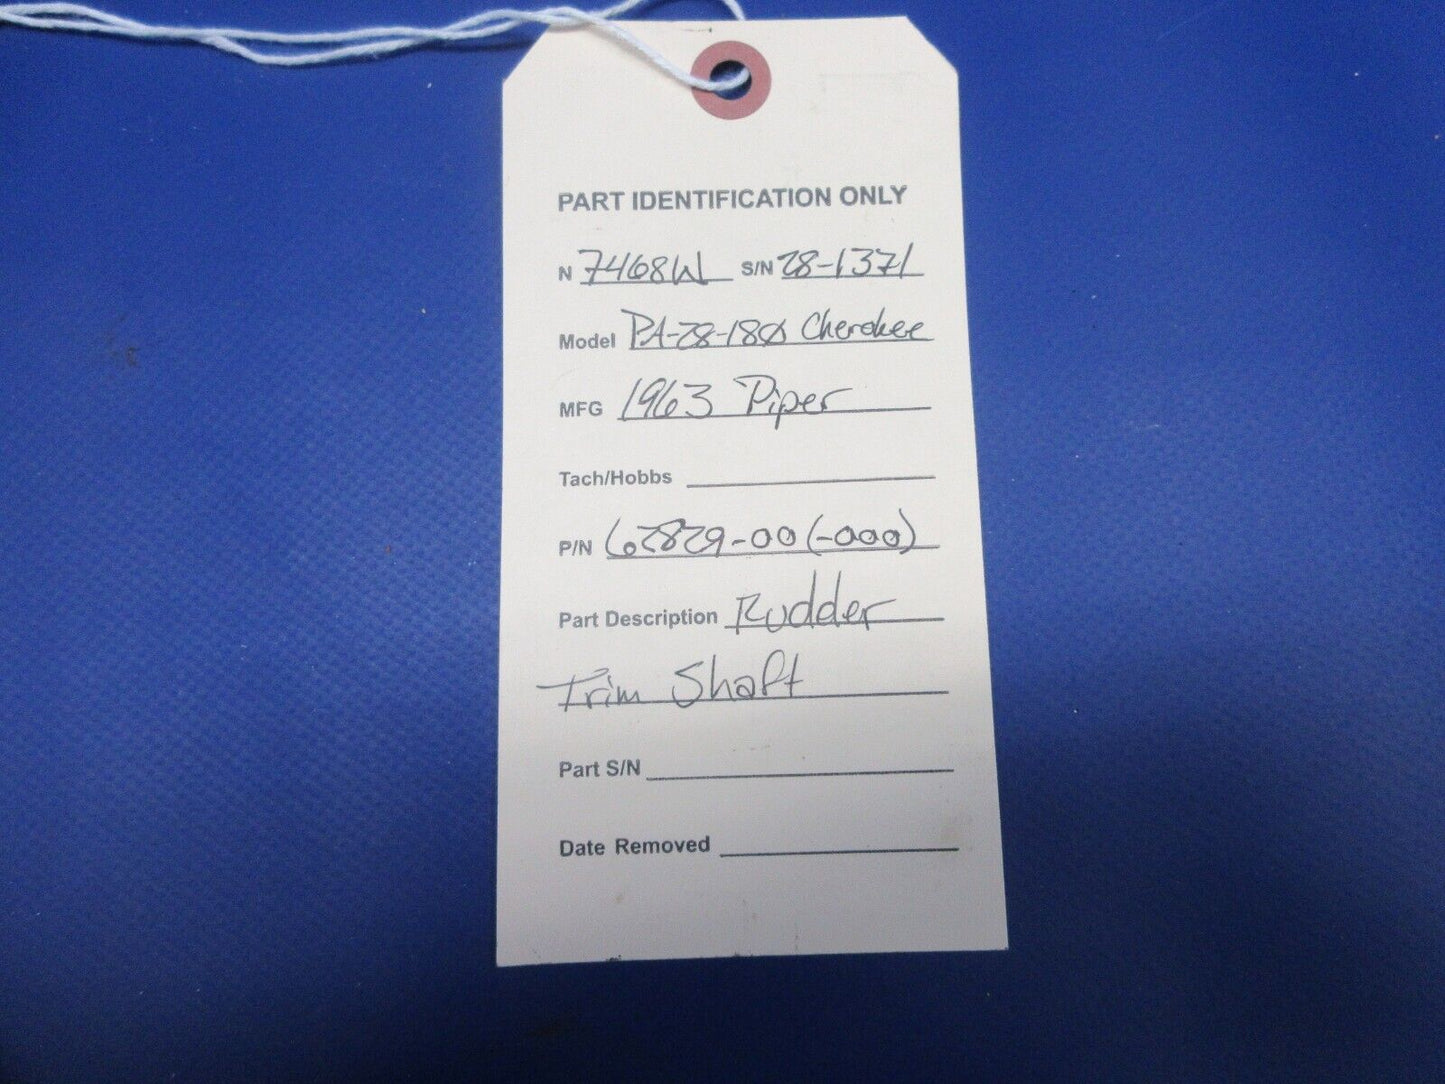 PART IDENTIFICATION ONLY
N 7468W S/N 28-1371
Model PA-28-180 Cherokee
MFG 1963 Piper
Tach/Hobbs
P/N 62829-00 (-000)
Part Description Rudder
Trim Shaft
Part S/N
Date Removed